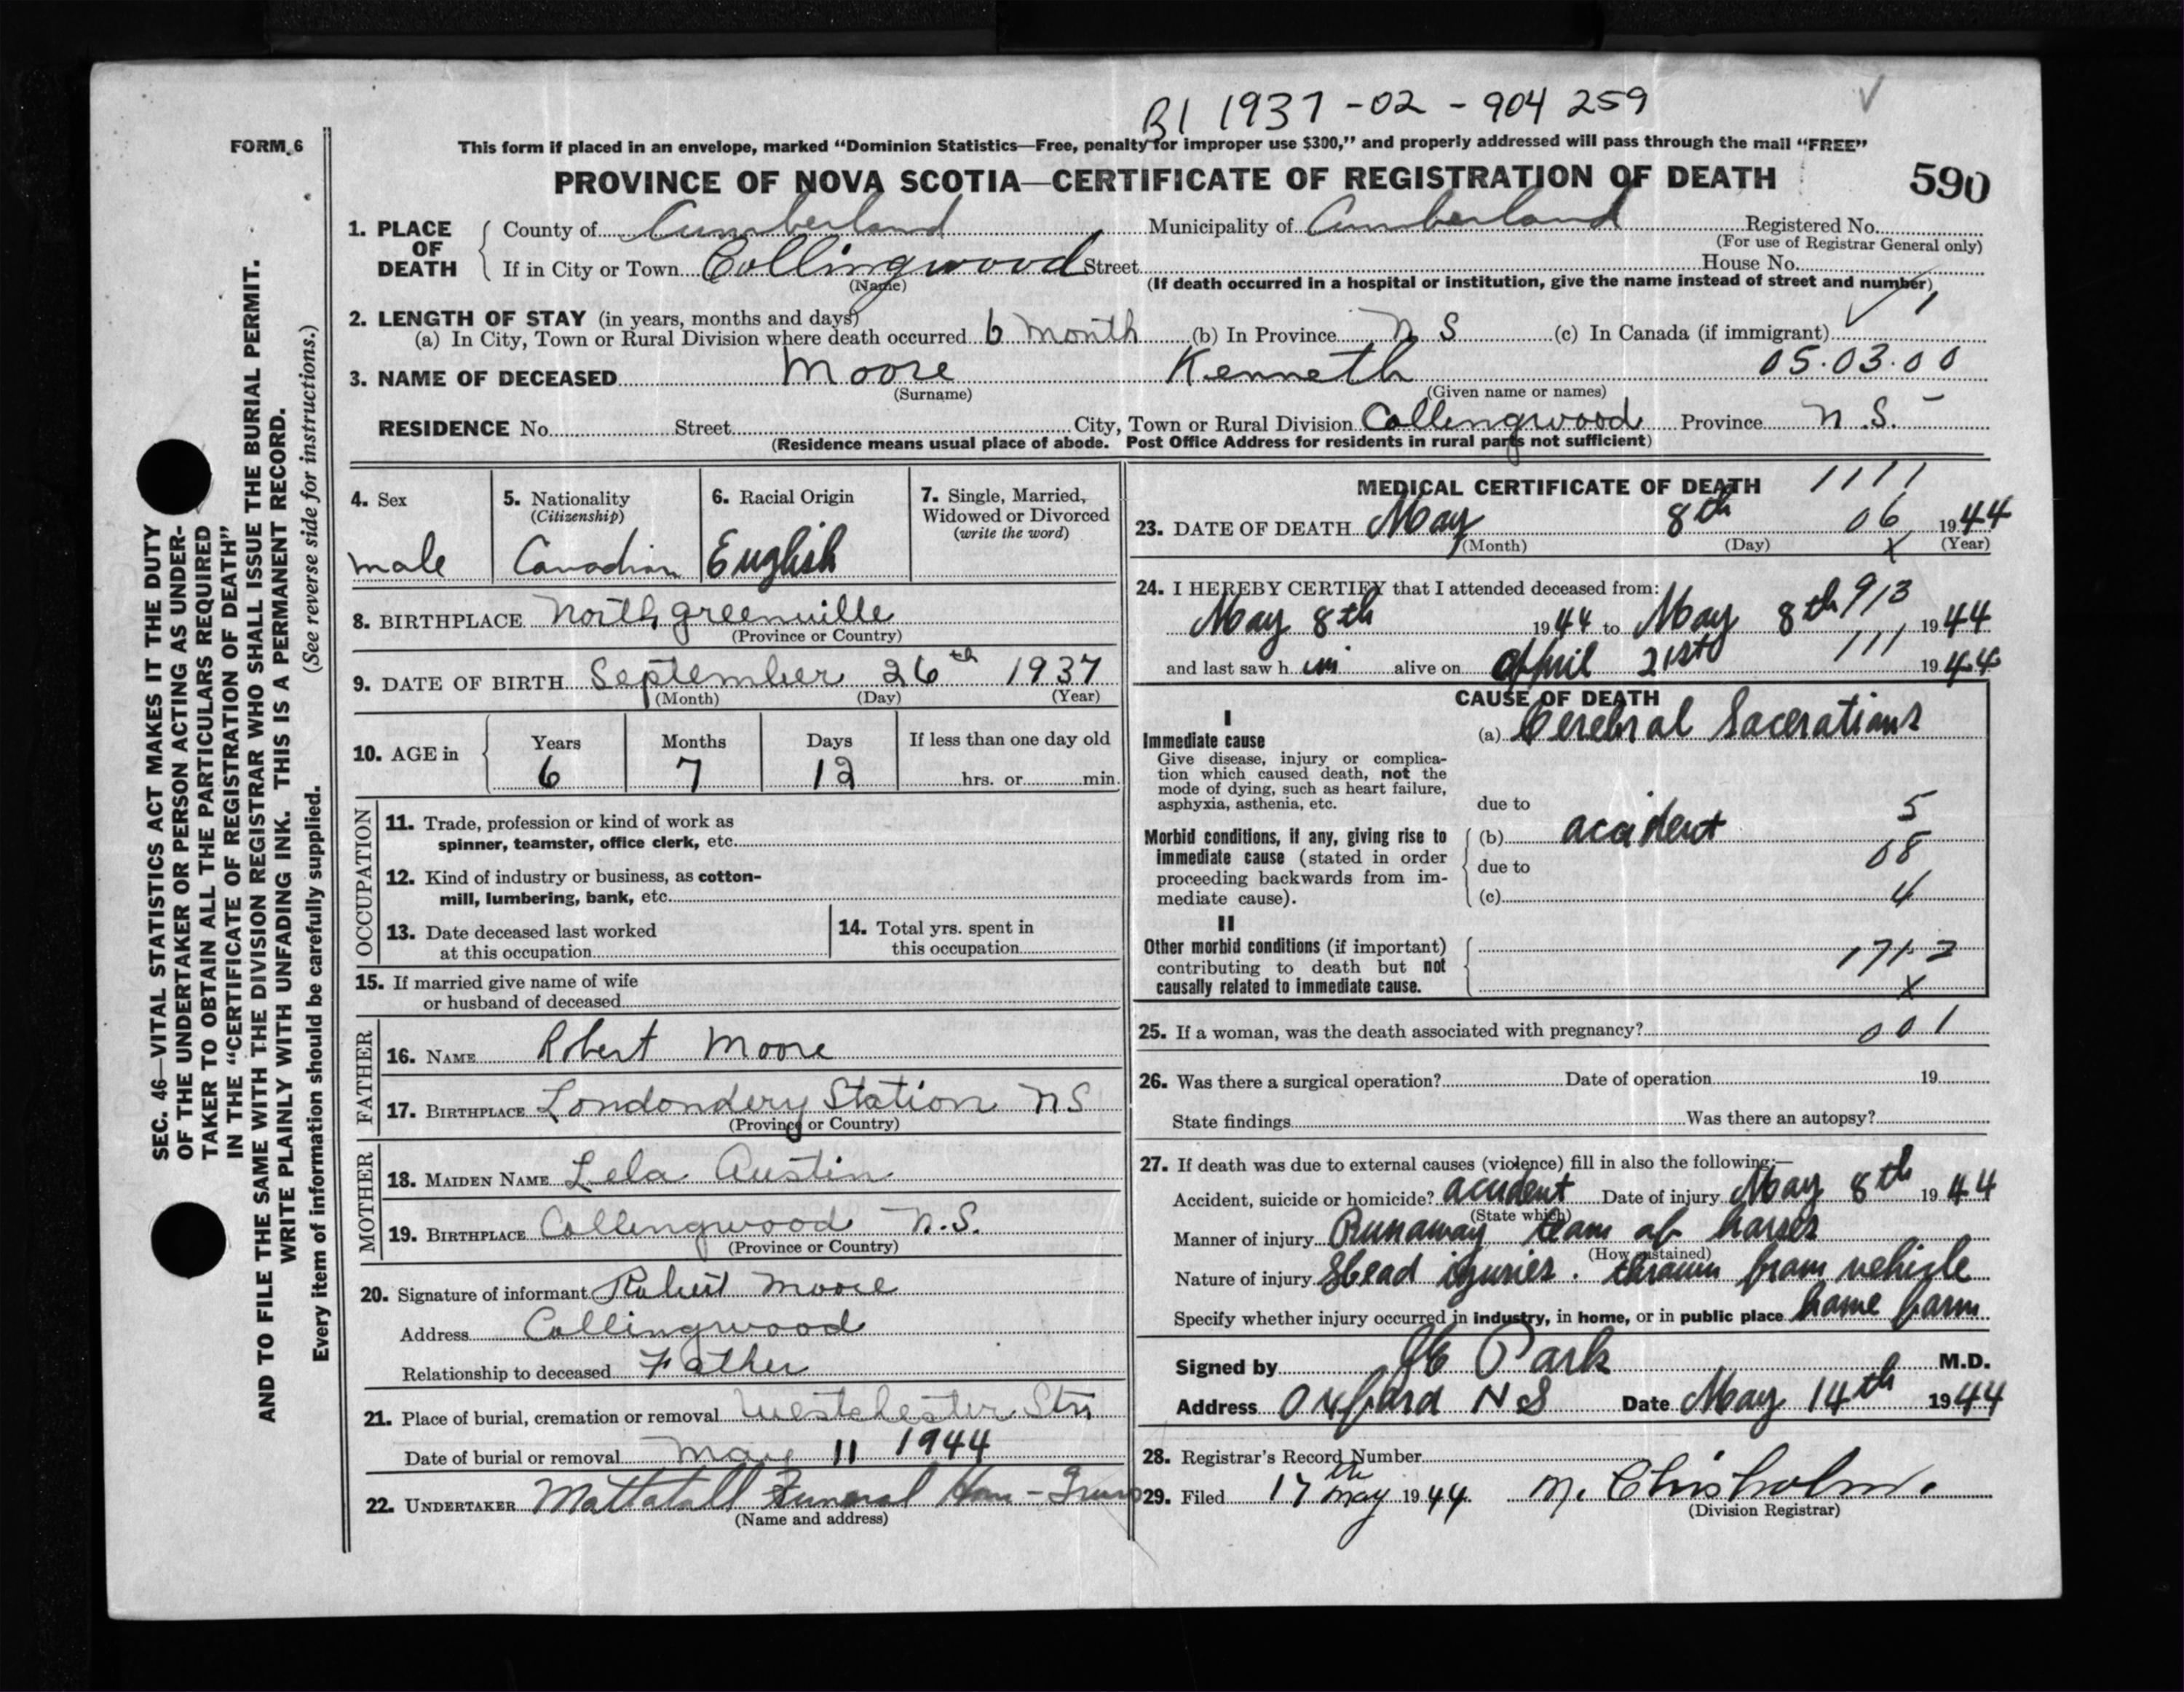 B1 1937-02-904 259
FORM 6
This form if placed in an envelope, marked “Dominion Statistics—Free, penalty for improper use $300,” and properly addressed will pass through the mail “FREE”
PROVINCE OF NOVA SCOTIA—CERTIFICATE OF REGISTRATION OF DEATH
590
SEC. 46—VITAL STATISTICS ACT MAKES IT THE DUTY
OF THE UNDERTAKER OR PERSON ACTING AS UNDER-
TAKER TO OBTAIN ALL THE PARTICULARS REQUIRED
IN THE “CERTIFICATE OF REGISTRATION OF DEATH”
AND TO FILE THE SAME WITH THE DIVISION REGISTRAR WHO SHALL ISSUE THE BURIAL PERMIT.
WRITE PLAINLY WITH UNFADING INK. THIS IS A PERMANENT RECORD.
Every item of information should be carefully supplied. (See reverse side for instructions.)
1. PLACE OF DEATH
County of Cumberland Municipality of Cumberland Registered No.
(For use of Registrar General only)
If in City or Town Collingwood Street House No.
(Name) (If death occurred in a hospital or institution, give the name instead of street and number)
2. LENGTH OF STAY (in years, months and days)
(a) In City, Town or Rural Division where death occurred 6 month (b) In Province N S (c) In Canada (if immigrant)
3. NAME OF DECEASED Moore Kenneth 05.03.00
(Surname) (Given name or names)
RESIDENCE No. Street City, Town or Rural Division Collingwood Province N.S.
(Residence means usual place of abode. Post Office Address for residents in rural parts not sufficient)
4. Sex
male
5. Nationality
(Citizenship)
Canadian
6. Racial Origin
English
7. Single, Married,
Widowed or Divorced
(write the word)
8. BIRTHPLACE North greenville
(Province or Country)
9. DATE OF BIRTH September 26th 1937
(Month) (Day) (Year)
10. AGE in Years Months Days If less than one day old
6 7 12 hrs. or min.
OCCUPATION
11. Trade, profession or kind of work as
spinner, teamster, office clerk, etc.
12. Kind of industry or business, as cotton-
mill, lumbering, bank, etc.
13. Date deceased last worked
at this occupation
14. Total yrs. spent in
this occupation
15. If married give name of wife
or husband of deceased
FATHER
16. NAME Robert Moore
17. BIRTHPLACE Londondery Station NS
(Province or Country)
MOTHER
18. MAIDEN NAME Lela Austin
19. BIRTHPLACE Collingwood N.S.
(Province or Country)
20. Signature of informant Robert Moore
Address Collingwood
Relationship to deceased Father
21. Place of burial, cremation or removal Westchester Stn
Date of burial or removal May 11 1944
22. UNDERTAKER Mattatall Funeral Hom - Truro
(Name and address)
MEDICAL CERTIFICATE OF DEATH 1111
23. DATE OF DEATH May 8th 06 1944
(Month) (Day) x (Year)
24. I HEREBY CERTIFY that I attended deceased from:
May 8th 1944 to May 8th 913 1944
and last saw h im alive on april 21st 111 1944
CAUSE OF DEATH
I
Immediate cause
Give disease, injury or complica-
tion which caused death, not the
mode of dying, such as heart failure,
asphyxia, asthenia, etc.
(a) Cerebral Lacerations
due to
Morbid conditions, if any, giving rise to
immediate cause (stated in order
proceeding backwards from im-
mediate cause).
(b) accident 5
due to 08
(c) 4
II
Other morbid conditions (if important)
contributing to death but not
causally related to immediate cause.
171.2
x
25. If a woman, was the death associated with pregnancy? 001
26. Was there a surgical operation? Date of operation 19
State findings Was there an autopsy?
27. If death was due to external causes (violence) fill in also the following:—
Accident, suicide or homicide? accident Date of injury May 8th 1944
(State which)
Manner of injury Runaway team of horses
(How sustained)
Nature of injury Head injuries. thrown from vehicle
Specify whether injury occurred in industry, in home, or in public place home farm
Signed by Park M.D.
Address Oxford N S Date May 14th 1944
28. Registrar's Record Number
29. Filed 17th May 1944. M. Chisholm.
(Division Registrar)